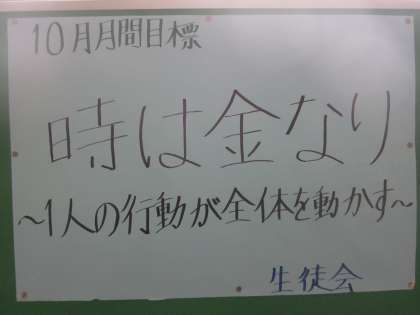 10月月間目標
時は金なり
～1人の行動が全体を動かす～
生徒会